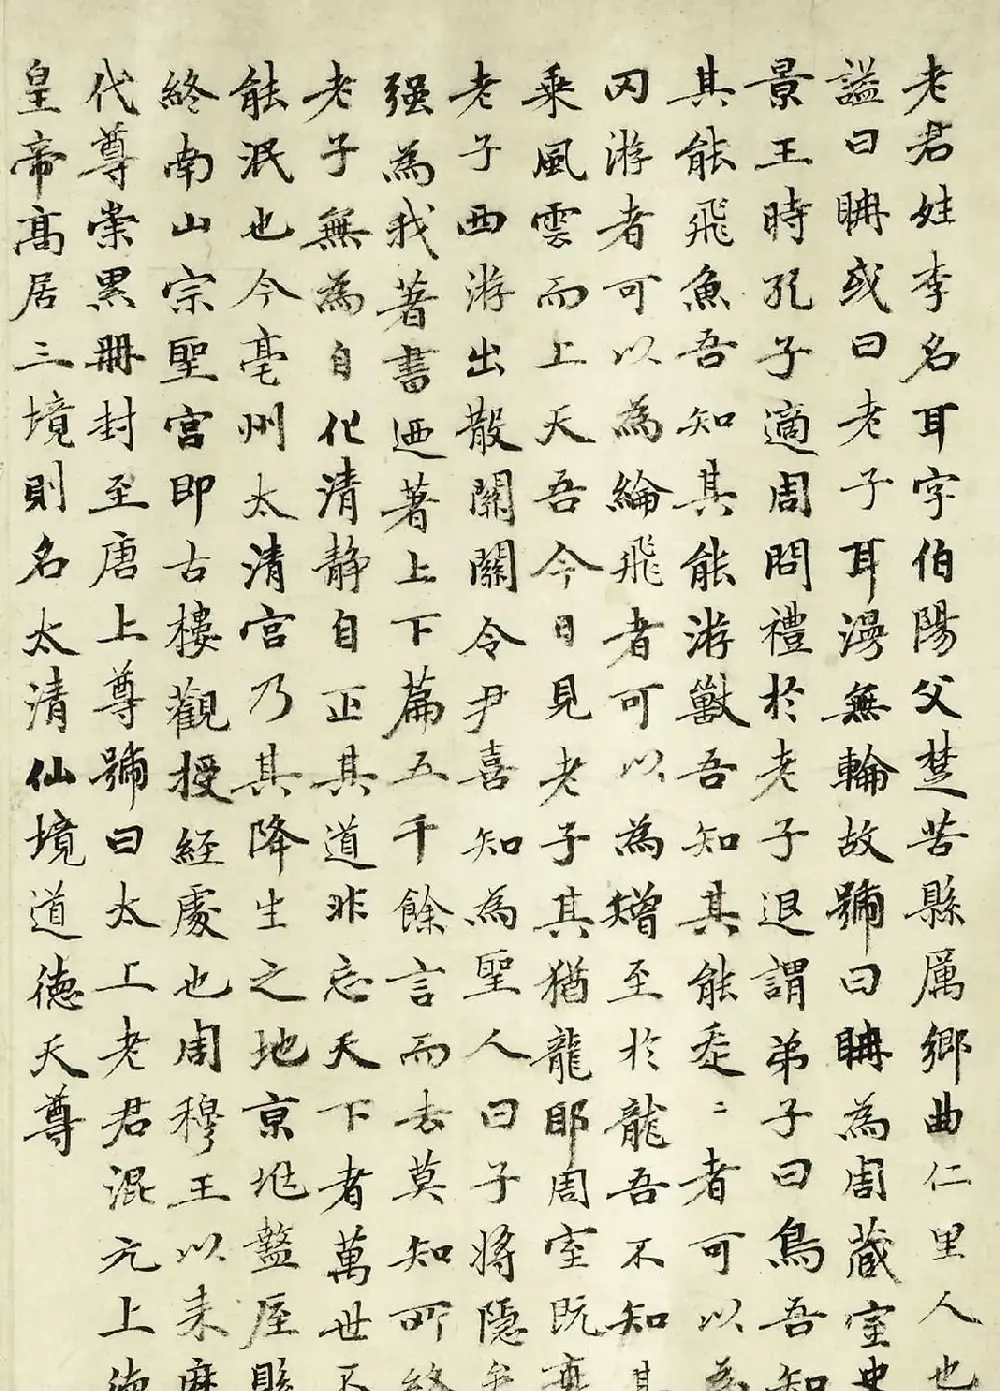 老君姓李名耳字伯陽父楚苦縣厲鄉曲仁里人也
謚曰聃或曰老子耳漫無輪故號曰聃為周蔵室史
景王時孔子適周問禮於老子退謂弟子曰鳥吾知
其能飛魚吾知其能游獸吾知其能走〻者可以為
罔游者可以為綸飛者可以為矰至於龍吾不知其
乘風雲而上天吾今日見老子其猶龍耶周室既衰
老子西游出散關關令尹喜知為聖人曰子將隱矣
强為我著書迺著上下篇五千餘言而去莫知所終
老子無為自化清静自正其道非忘天下者萬世不
能泯也今亳州太清宮乃其降生之地京兆盩厔縣
終南山宗聖宮即古樓觀授経處也周穆王以来歷
代尊崇累冊封至唐上尊號曰太上老君混元上德
皇帝髙居三境則名太清仙境道德天尊